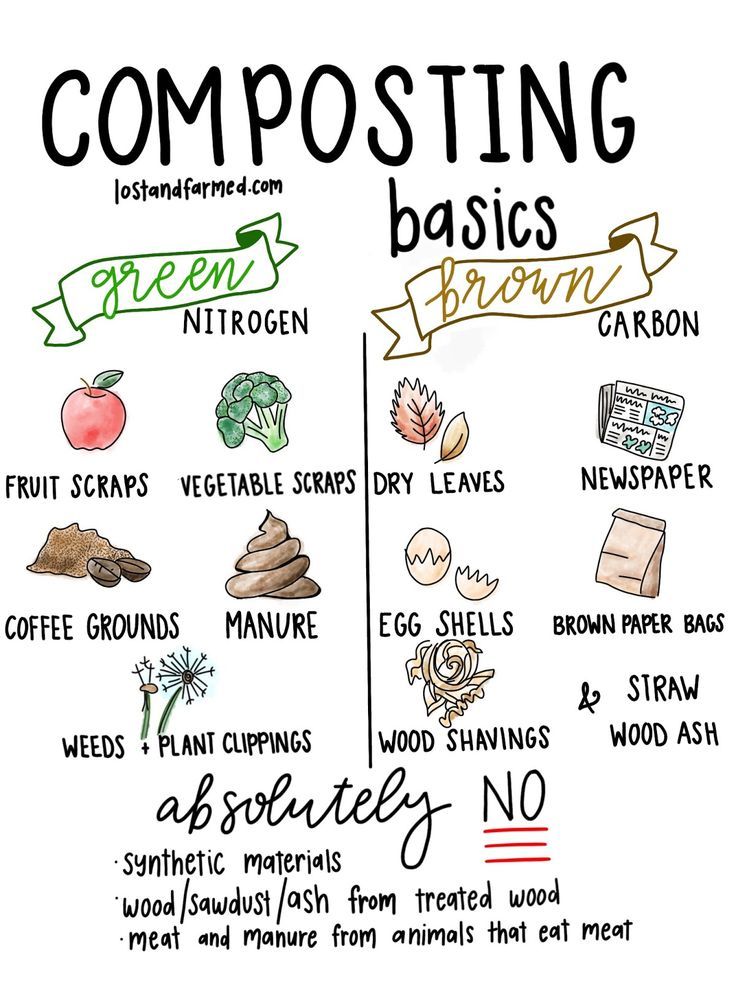 COMPOSTING
lostandfarmed.com
basics
green
NITROGEN
FRUIT SCRAPS
VEGETABLE SCRAPS
COFFEE GROUNDS
MANURE
WEEDS + PLANT CLIPPINGS
brown
CARBON
DRY LEAVES
NEWSPAPER
EGG SHELLS
BROWN PAPER BAGS
WOOD SHAVINGS
& STRAW
WOOD ASH
absolutely NO
· synthetic materials
· wood/sawdust/ash from treated wood
· meat and manure from animals that eat meat